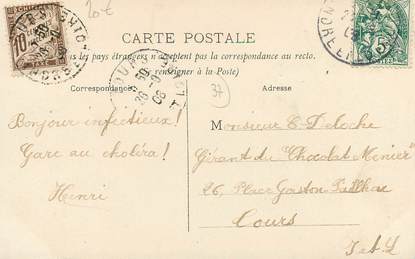 20€
CARTE POSTALE
les pays étrangers n'acceptent pas la correspondance au recto.
renseigner à la Poste)
Correspondance
37
Adresse
Bonjour infectieux!
Gare au choléra!
Henri
Monsieur E. Deloche
Gérant du "Chocolat Menier"
26, Place Gaston
Tours
I & L
10
5